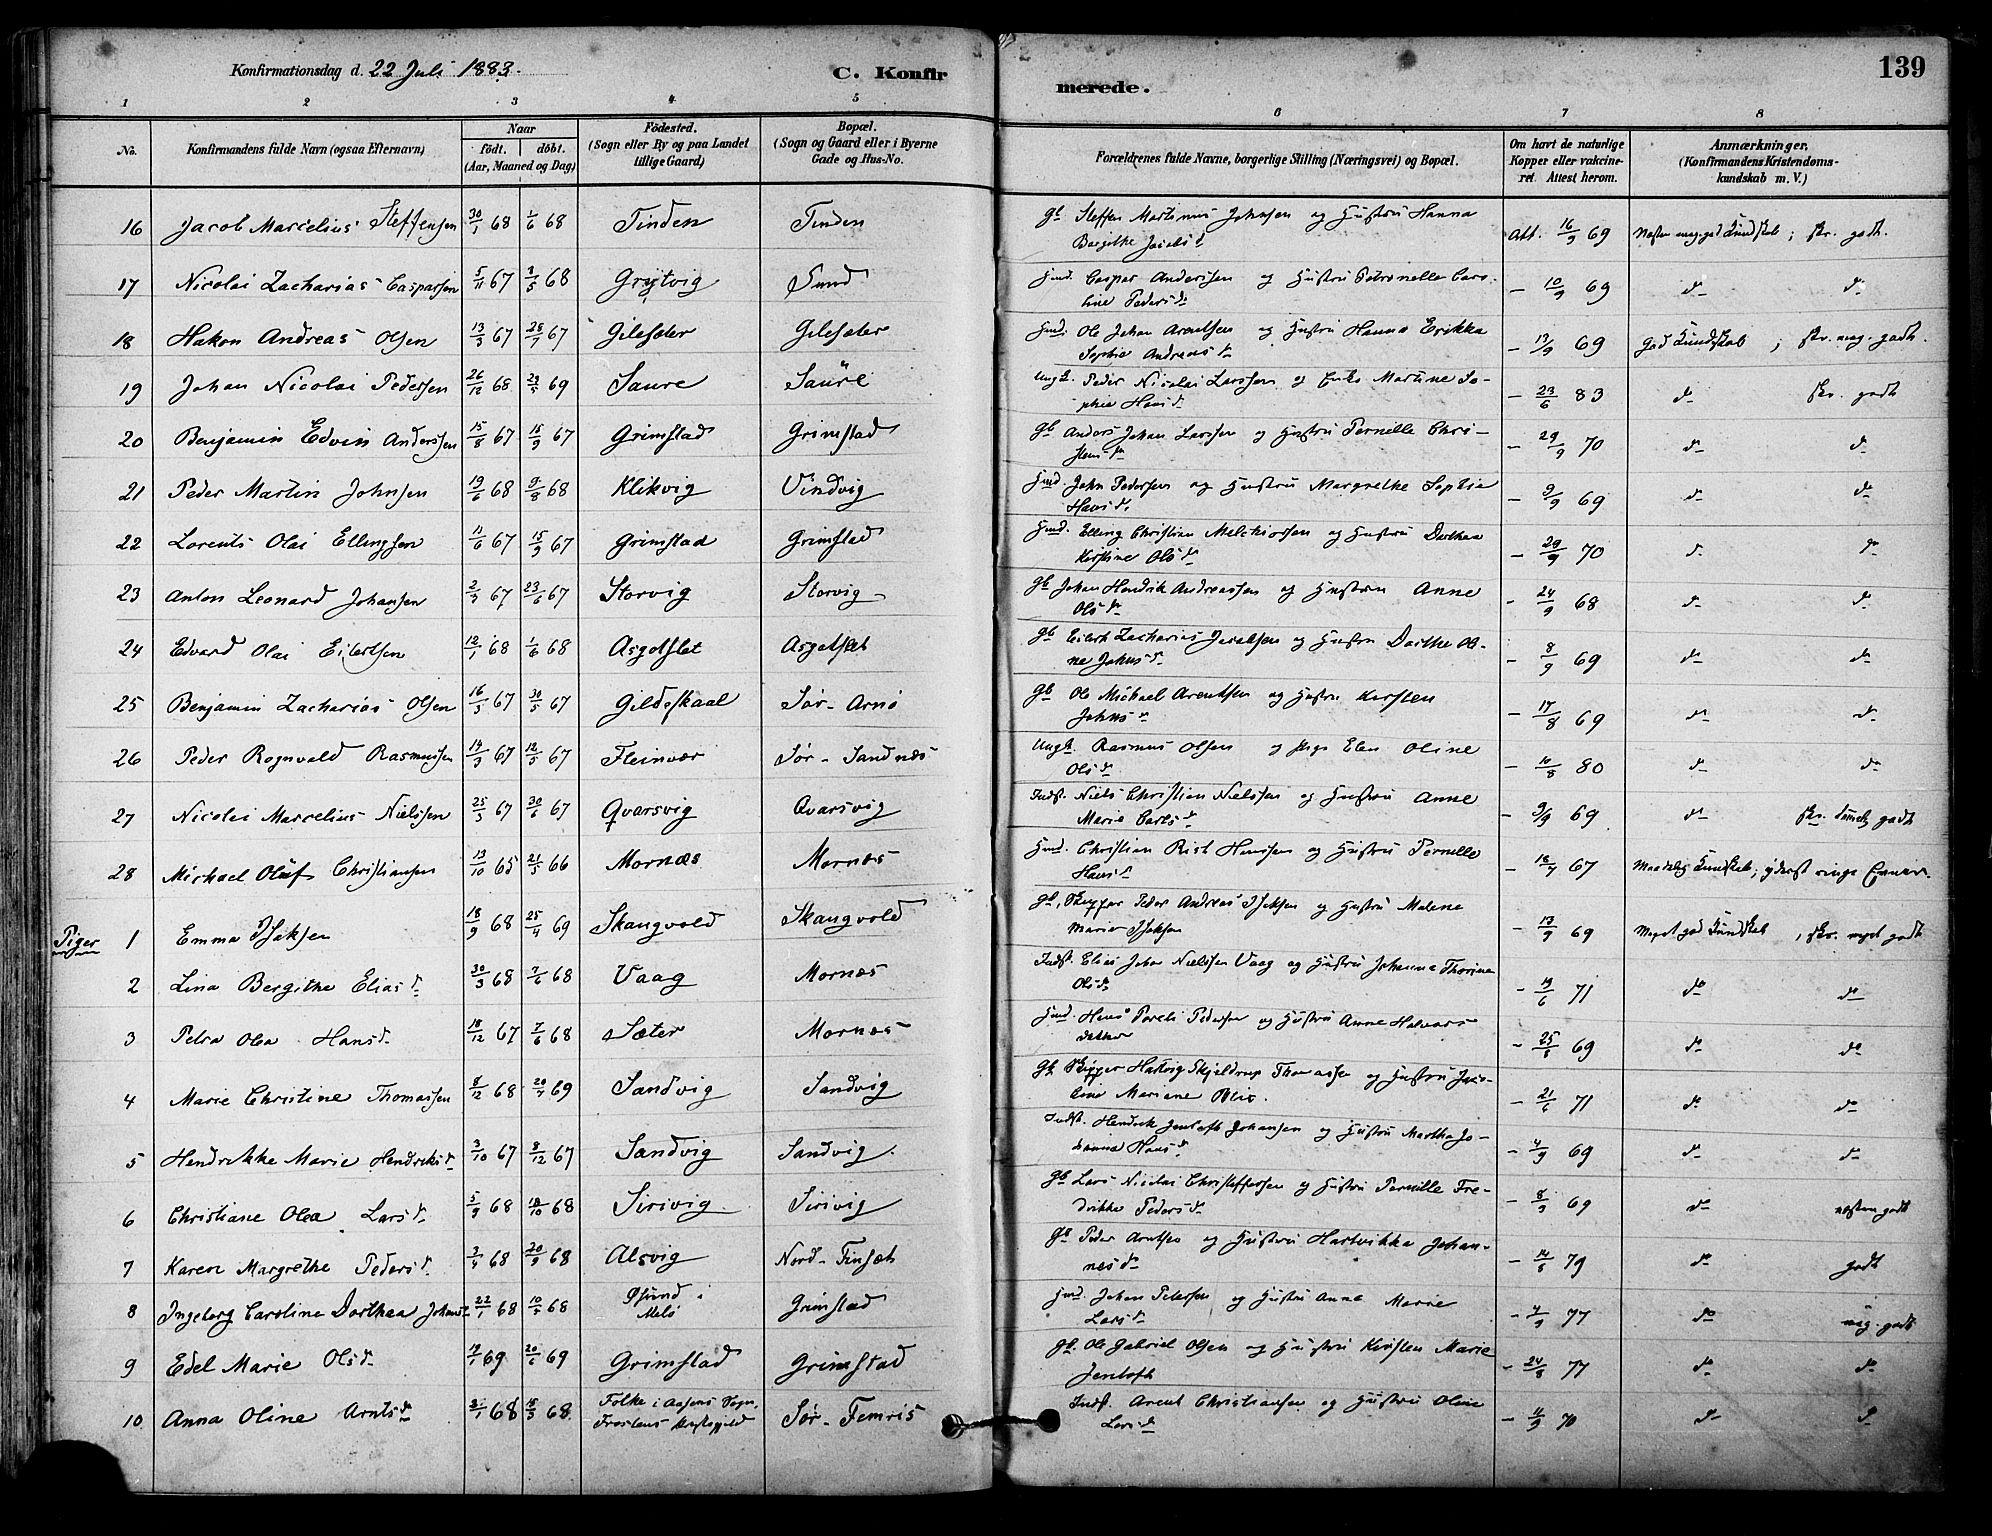 Konfirmationsdag d. 22 Juli 1883.
C. Konfirmerede.
139
1 2 3 4 5 6 7 8
No.
Konfirmandens fulde Navn (ogsaa Efternavn)
Naar
födt. döbt.
(Aar, Maaned og Dag)
Födested.
(Sogn eller By og paa Landet
tillige Gaard)
Bopæl.
(Sogn og Gaard eller i Byerne
Gade og Hus-No.
Forældrenes fulde Navne, borgerlige Stilling (Næringsvei) og Bopæl.
Om havt de naturlige
Kopper eller vakcine-
ret. Attest herom.
Anmærkninger.
(Konfirmandens Kristendoms-
kundskab m. V.)
16 Jacob Marcelius Steffensen 30/1 68 1/6 68 Tinden Tinden gb Steffen Martinus Johnsen og Hustru Hanna
Bergithe Jacobsd. Att. 16/9 69 Næsten meg. god Kundskab; flv. godt.
17 Nicolai Zacharias Caspersen 5/11 67 3/5 68 Grytvig Sund Hmd. Caspar Anderssen og Hustru Petronelle Caro-
line Pedersdr - 10/9 69 do do
18 Hakon Andreas Olsen 13/3 67 28/7 67 Gilesæter Gilesæter Hmd. Ole Johan Arentsen og Hustru Hanna Erikka
Sophia Andreasdr - 13/9 69 God Kundskab; flv. meg. godt.
19 Johan Nicolai Pedersen 26/12 68 29/5 69 Saure Saure Ungk. Peder Nicolai Larssen og Enke Martine So-
phia Hansdr - 23/6 83 do flv. godt
20 Benjamin Edvin Anderssen 15/8 67 15/9 67 Grimstad Grimstad gb Anders Johan Larssen og Hustru Pernelle Chri-
stensdr - 29/9 70 do do
21 Peder Martin Johnsen 19/6 68 9/8 68 Klikvig Vindvig Hmd. John Pedersen og Hustru Margrethe Sophie
Hansdr. - 9/9 69 do do
22 Lorents Olai Ellingsen 11/6 67 15/9 67 Grimstad Grimstad Hmd. Elling Christian Melchiorsen og Hustru Dorthea
Kirstine Olsdr - 29/9 70 do do
23 Anton Leonard Johansen 2/3 67 23/6 67 Storvig Storvig gb Johan Hendrik Andreassen og Hustru Anne
Olsdr - 24/9 68 do do
24 Edvard Olai Eilertsen 12/1 68 1/6 68 Asgotslet Asgotslet gb Eilert Zacharias Jacobsen og Hustru Dorthe Ol-
ne Johnsdr - 8/9 69 do do
25 Benjamin Zacharias Olsen 16/3 67 30/5 67 Gildeskaal Sør-Arnø gb Ole Michael Arentsen og Hustru Kirsten
Johnsdr - 17/8 69 do do
26 Peder Rognvald Rasmussen 14/3 67 12/5 67 Fleinvær Sør-Sandnæs Ungk. Rasmus Olsen og Pige Elen Oline
Olsdr - 10/8 80 do do
27 Nicolai Marcelius Nielssen 25/3 67 30/6 67 Qvarsvig Qvarsvig Indst. Niels Christian Nielssen og Hustru Anne
Marie Carlsdr - 9/9 69 do flv. temmelig godt
28 Michael Oluf Christiansen 13/10 65 21/5 66 Mornæs Mornæs Hmd. Christian Rist Hanssen og Hustru Pernelle
Hansdr - 18/7 67 Maadelig Kundskab; yderst ringe
Piger
1 Emma Isaksen 18/9 68 25/4 69 Skaugvold Skaugvold gb. Skipper Peder Andreas Isaksen og Hustru Malene
Marie Isaksen - 13/9 69 Meget god Kundskab, flv. meget godt
2 Lina Bergithe Eliasdr 30/3 68 7/6 68 Vaag Mornæs Indst. Elias Johan Nielssen Vaag og Hustru Johanna Thorine
Olsdr - 19/6 71 do do
3 Petra Olea Hansdr 18/12 67 7/6 68 Sæter Mornæs Hmd. Hans Pareli Pedersen og Hustru Anne Halvors
datter - 25/8 69 do do
4 Marie Christine Thomassen 8/12 68 20/7 69 Sandvig Sandvig gb. Skipper Hartvig Skjeldrup Thomassen og Hustru Jaco-
bine Mariane Blix. - 21/6 71 do do
5 Hendrikke Marie Hendriksdr 3/10 67 8/12 67 Sandvig Sandvig Indst. Hendrik Jentoft Johansen og Hustru Martha Jo-
hanna Hansdr - 4/9 69 do do
6 Christiane Olea Larsdr 5/9 68 18/10 68 Sirivig Sirivig gb Lars Nicolai Christoffersen og Hustru Pernille Fre-
drikke Pedersdr - 8/9 69 do næsten godt
7 Karen Margrethe Pedersdr. 2/4 68 20/9 68 Alsvig Nord-Finset gb Peder Arntsen og Hustru Hartvikka Johan-
nesdr - 14/8 79 do godt
8 Ingeborg Caroline Dorthea Johansdr 22/1 68 10/4 68 Øsund i
Melø Grimstad Hmd. Johan Petersen og Hustru Anna Marie
Larsdr - 4/9 77 do meg. godt
9 Edel Marie Olsdr 17/1 69 20/6 69 Grimstad Grimstad gb. Ole Gabriel Olsen og Hustru Kirsten Marie
Jentoft - 24/8 77 do do
10 Anna Oline Arntsdr 31/1 68 15/3 68 Falke i Aasens Sogn,
Frostens Præstegjeld Sør-Femris Indst. Arent Christiansen og Hustru Oline
Larsdr - 11/9 70 do do